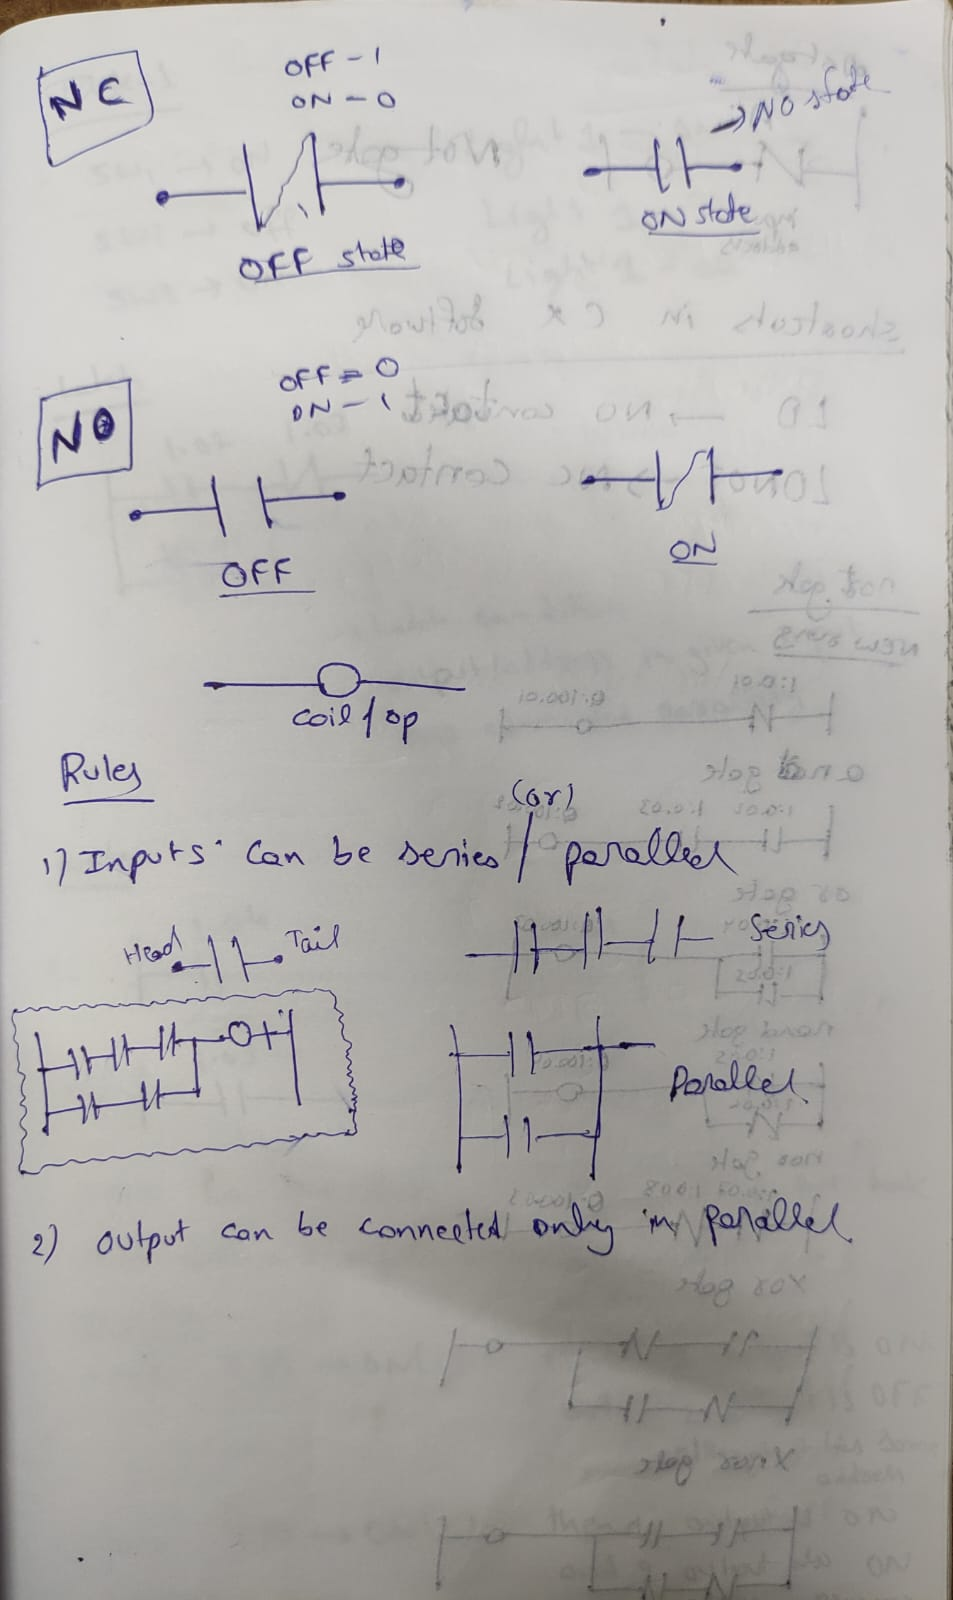 NC
OFF - 1
ON - 0
→ NO state
OFF state
ON state
NO
OFF = 0
ON - 1
OFF
ON
coil / op
Rules
(or)
1) Inputs can be series / parallel
Head
Tail
Series
Parallel
2) output can be connected only in parallel